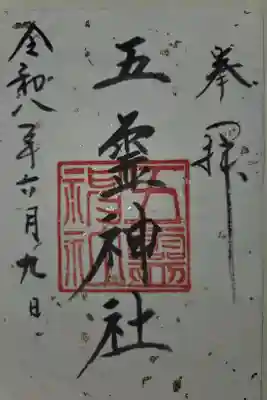 奉拝
五霊神社
五靈神社
令和八年六月九日